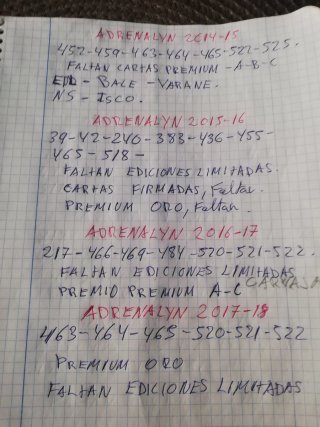 ADRENALYN 2014-15
452-459-463-464-465-522-525.
FALTAN CARTAS PREMIUM -A-B-C
EDL - BALE - VARANE.
NS - ISCO.
ADRENALYN 2015-16
39-42-240-383-436-455-
465-518-
FALTAN EDICIONES LIMITADAS.
CARTAS FIRMADAS, Faltan.
PREMIUM ORO, Faltan.
ADRENALYN 2016-17
217-466-469-484-520-521-522.
FALTAN EDICIONES LIMITADAS
PREMIO PREMIUM A-C
ADRENALYN 2017-18
463-464-465-520-521-522
PREMIUM ORO
FALTAN EDICIONES LIMITADAS